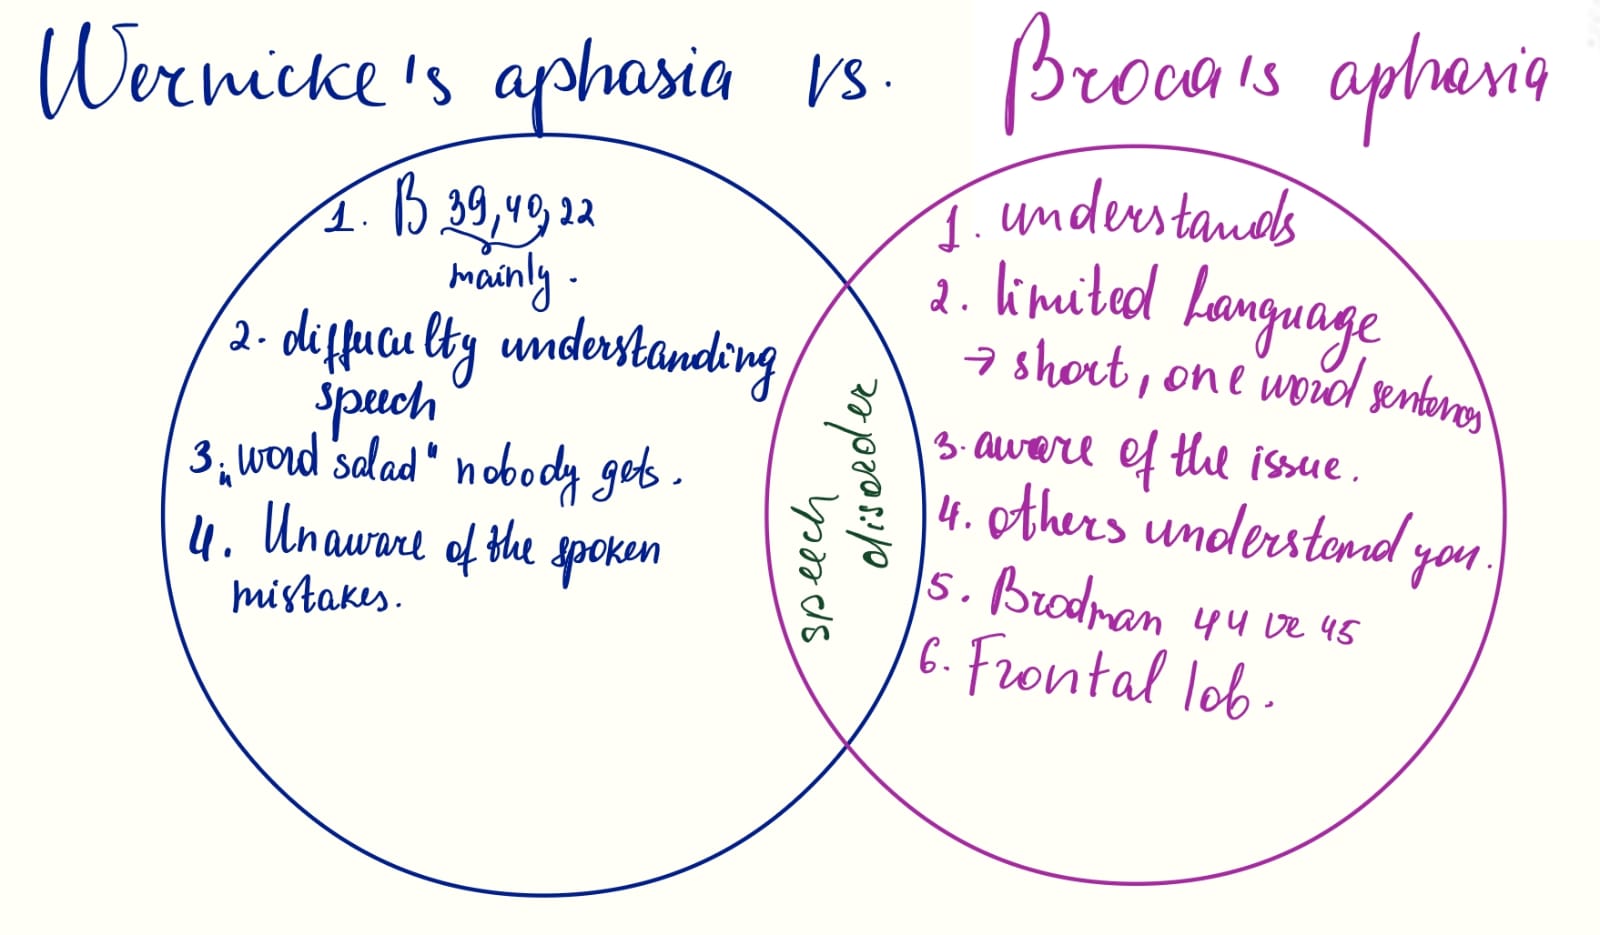 Wernicke's aphasia vs. Broca's aphasia
1. B 39,40,22
mainly.
2. diffuculty understanding
speech
3. „word salad" nobody gets.
4. Unaware of the spoken
mistakes.
speech
disorder
1. understands
2. limited language
→ short, one word sentences
3. aware of the issue.
4. others understand you.
5. Brodman 44 ve 45
6. Frontal lob.